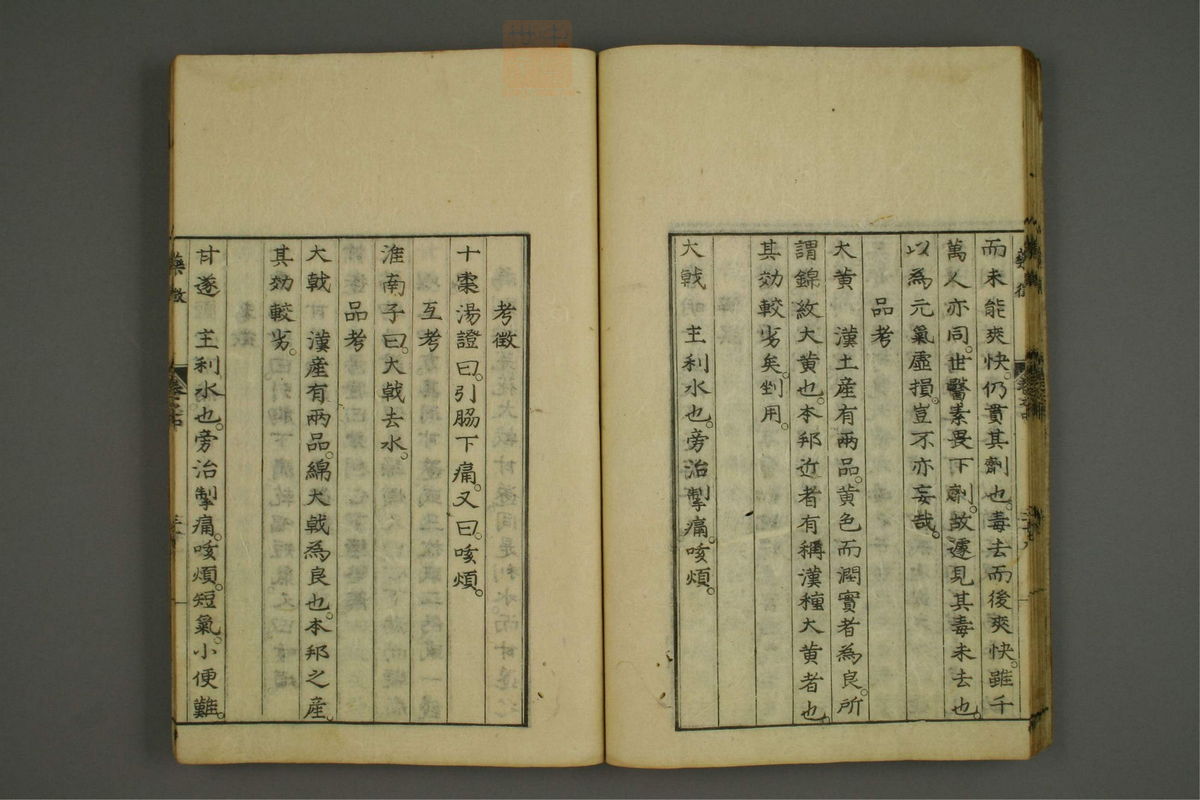 而未能爽快。仍貫其劑也。毒去而後爽快。雖千
萬人亦同。世醫素畏下劑。故遽見其毒未去也。
以為元氣虛損。豈不亦妄哉。
品考
大黃 漢土産有兩品。黃色而潤實者為良。所
謂錦紋大黃也。本邦近者有稱漢種大黃者也。
其効較劣矣。剉用。
大戟 主利水也。旁治掣痛。咳煩。
考徵
十棗湯證曰。引脇下痛。又曰。咳煩。
互考
淮南子曰。大戟去水。
品考
大戟 漢産有兩品。綿大戟為良也。本邦之産。
其効較劣。
甘遂 主利水也。旁治掣痛。咳煩。短氣。小便難。
藥徵